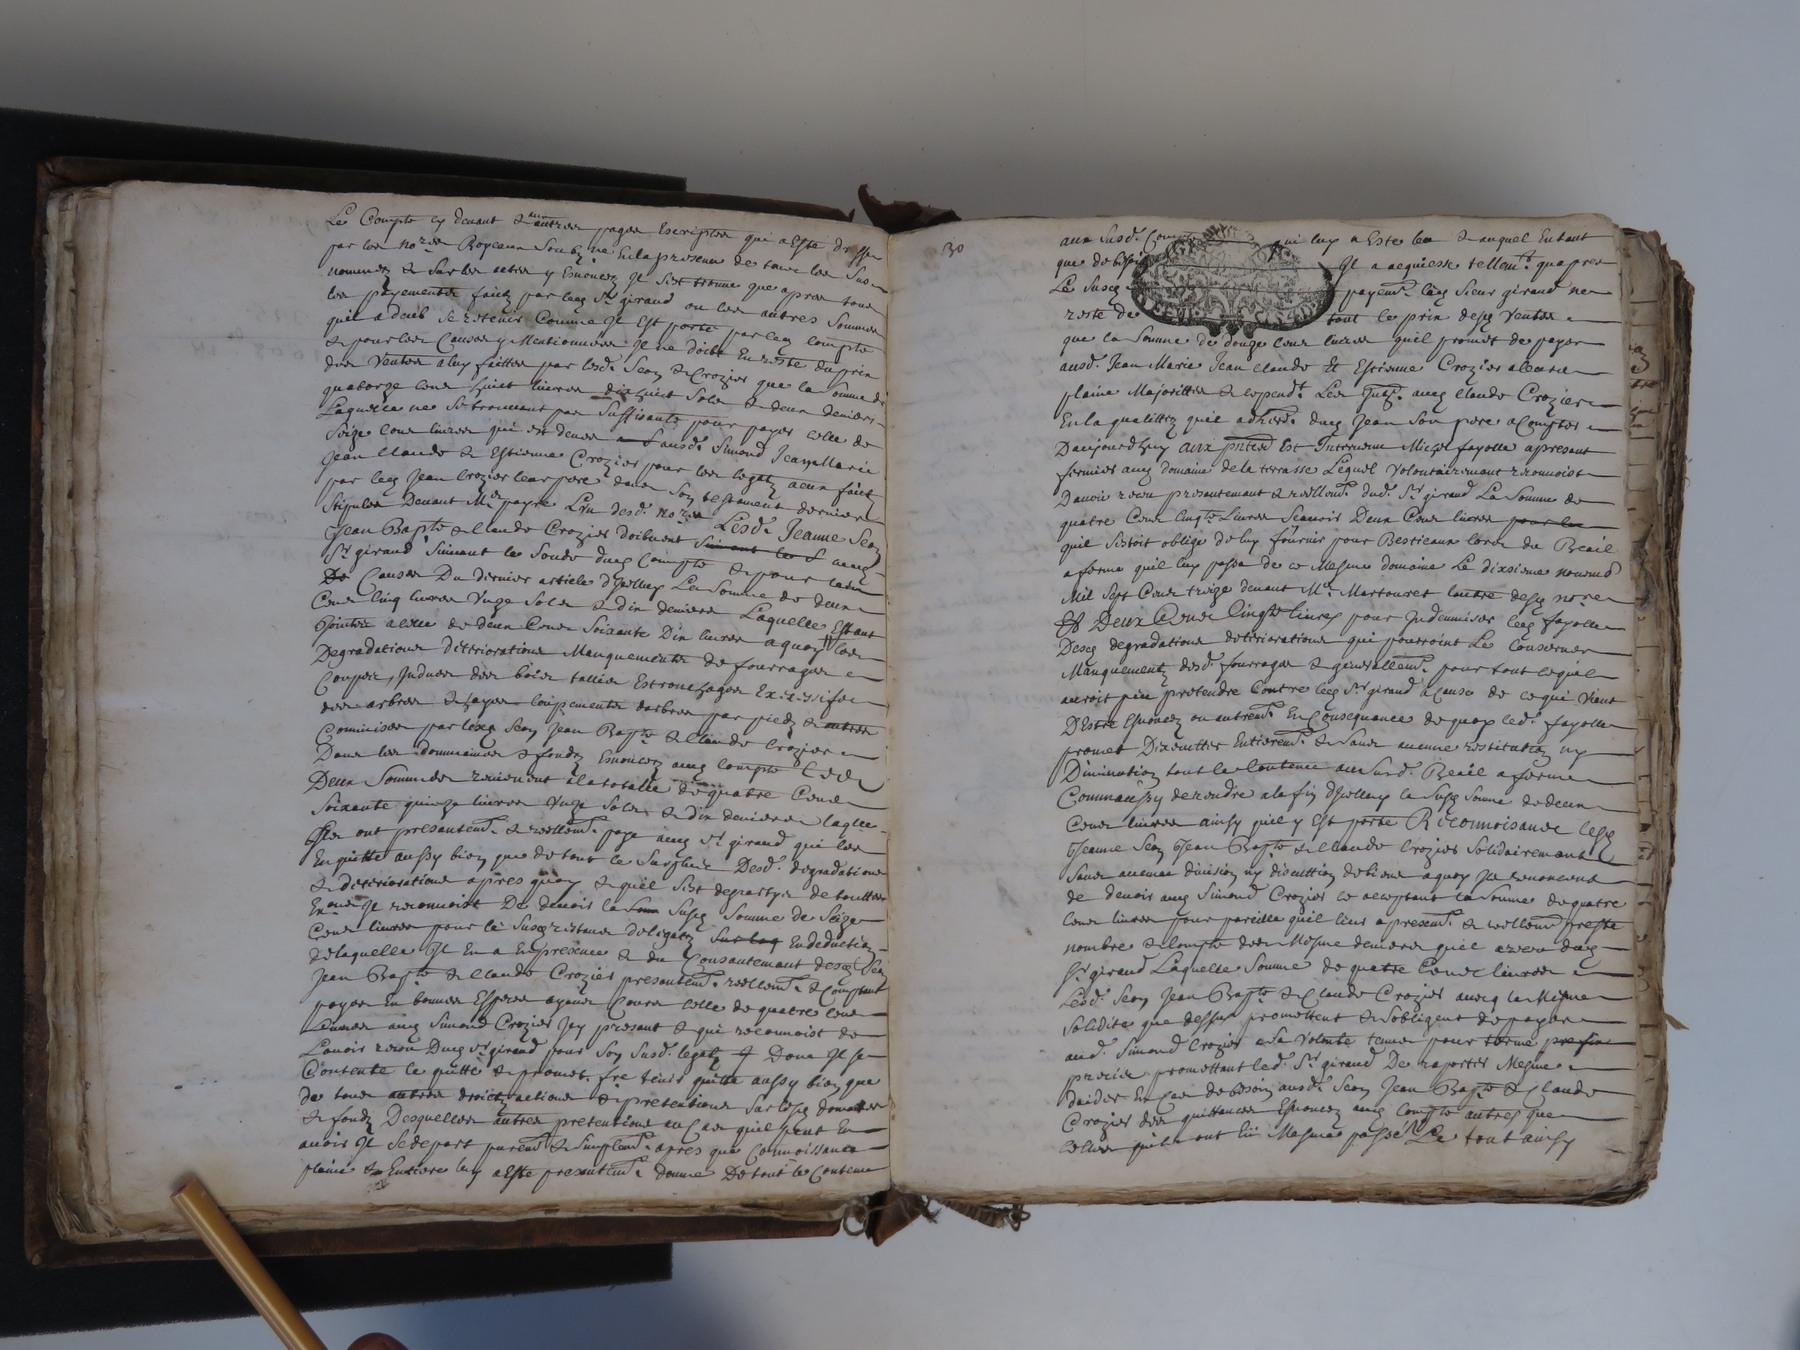 Le Compte cy devant & aux autres pages Escriptes qui a Esté dressé
par les no.res Royeaux Soub.nés En la presence de tous les Sus
nommez & Sur les actes y Enoncez Il S'est trouvé que apres tous
les payements faitz par led. Sr girand ou les autres Sommes
quil a deub Se retenir Comme Il Est porté par led. compte
& pour les Causes y Mentionnees Il ne doibt En reste du prix
des Ventes a luy faittes par lesd. Seon & Crozier que la Somme de
quatorze cens huict livres dix huict Sols & deux deniers
Laquelle ne Se trouvant pas Suffisante pour payer celle de
Seize cens livres qui est deue ausd. Simond Jean Marie
Jean Claude & Estienne Crozier pour les legatz a eux faict
par led. Jean Crozier leur pere dans Son testament dernier
Stipulés Devant Me payre L'un desd. no.res Lesd. Jeanne Seon
Jean Bap.te & Claude Crozier doibvent Suivant les S aud.
Sr girand Suivant le Solde dud. Compte & pour les
Causes Du dernier article d'Iselluy La Somme de deux
Cens Cinq livres Unze Sols & dix deniers Laquelle Estant
Jointe a celle de deux Cens Soixante Dix livres a quoy les
Degradations Deteriorations Manquements de fourrages
Coupes Indues des bois tallies Estronchages Excessifs
des arbres & Coupements d'arbres par pieds & autres
Commises par lesd. Seon Jean Bap.te & Claude Crozier
Dans les dommaines & fondz Enoncez aud. Compte Ces
Deux Sommes revienent a la totalle de quatre Cens
Soixante quinze livres Unze Sols & dix deniers laquelle
Ils ont presantem.t & reellem.t payé aud. Sr girand qui les
En quitte aussy bien que de tout le Surplus Desd. degradations
& deteriorations apres quoy & quil S'est departy de touttes
Il reconnoist De devoir la Som Susd. Somme de Seize
Cens livres pour la Susd. restance de legatz Sur laq En deduction
de laquelle Il En a En presence & du Consantement desd. Seon
Jean Bap.te & Claude Crozier presantem.t reellem.t & Comptant
payer En bonnes Especes ayant Cours celle de quatre cens
Livres aud. Simond Crozier Icy presant & qui reconnoist de
L'avoir receu Dud. Sr girand pour Son Susd. legatz Dont Il Se
Contente le quitte & promet fre tenir quitte aussy bien que
de tous autres droictz actions & pretentions Sur lesd. domaines
& fondz Desquelles autres pretentions au Cas quil peut En
avoir Il Se depart purem.t & Simplem.t apres que Connoissance
plaine & Entiere luy a Esté presantem.t donnée De tout le Contenu
30
aux Susd. Comp qui luy a Esté leu & auquel En tant
que de besoin Il a acquiessé tellem.t quapres
Le Susd. payem.t led. Sieur girand ne
reste de tout le prix desd. Ventes
que la Somme de douze cens livres quil promet de payer
ausd. Jean Marie Jean Claude Et Estienne Crozier a leur
plaine Majorittée & cepend.t Les Inthz. aud. Claude Crozier
En la qualittez quil adheré dud. Jean Son pere a Compter
Daujourdhuy aux pntes Est Intervenu Micel fayolle a presant
fermier aud. Domaine de la terrasse Lequel Volontairemant reconnoist
D'avoir receu presantemant & reellem.t dud. Sr girand La Somme de
quatre Cens Cinq.te Livres Scavoir Deux Cens livres pour les
quil S'estoit obligé de luy fournir pour Bestieaux lors du Beail
a ferme quil luy passa de ce Mesme domaine Le dixiesme novemb.
Mil Sept Cens treize devant Me Martouret l'autre desd. no.res
Et Deux Cens Cinq.te livres pour Indemniser led. fayolle
Desd. degradations deteriorations qui pourroint Le Conserner
Manquementz desd. fourrages & generallem.t pour tout ce quil
auroit peu pretendre Contre led. Sr girand a Cause de ce qui Vient
D'Estre Enoncez ou autrem.t En Consequance de quoy led. fayolle
promet D'Executter Entierem.t & Sans aucune restitution ny
Diminution tout le Contenu au Susd. Beail a ferme
Commaussy de rendre a la fin d'Iselluy la Susd. Somme de deux
Cens livres ainsy quil y Est porté Reconnoisant lesd.
Jeanne Seon Jean Bap.te & Claude Crozier Solidairemant
Sans aucune division ny discution de biens a quoy Ils renoncent
de devoir aud. Simond Crozier ce acceptant la Somme de quatre
Cens livres pour pareille quil leur a presentem.t & reellem.t presté
nombré & Compté des Mesme deniers quil a receu dud.
Sr girand Laquelle Somme de quatre Cens livres
Lesd. Seon Jean Bap.te & Claude Crozier avecq la Mesme
Solidité que dessus promettent & S'obligent de payer
aud. Simond Crozier a Sa Volonté tenue pour terme prefix
precis promettant led. Sr girand De raporter Mesme
d'aider En Cas de besoin ausd. Seon Jean Bap.te & Claude
Crozier des quittances Enoncez aud. Compte autres que
celles quils ont lui Mesme passé Le tout ainsy